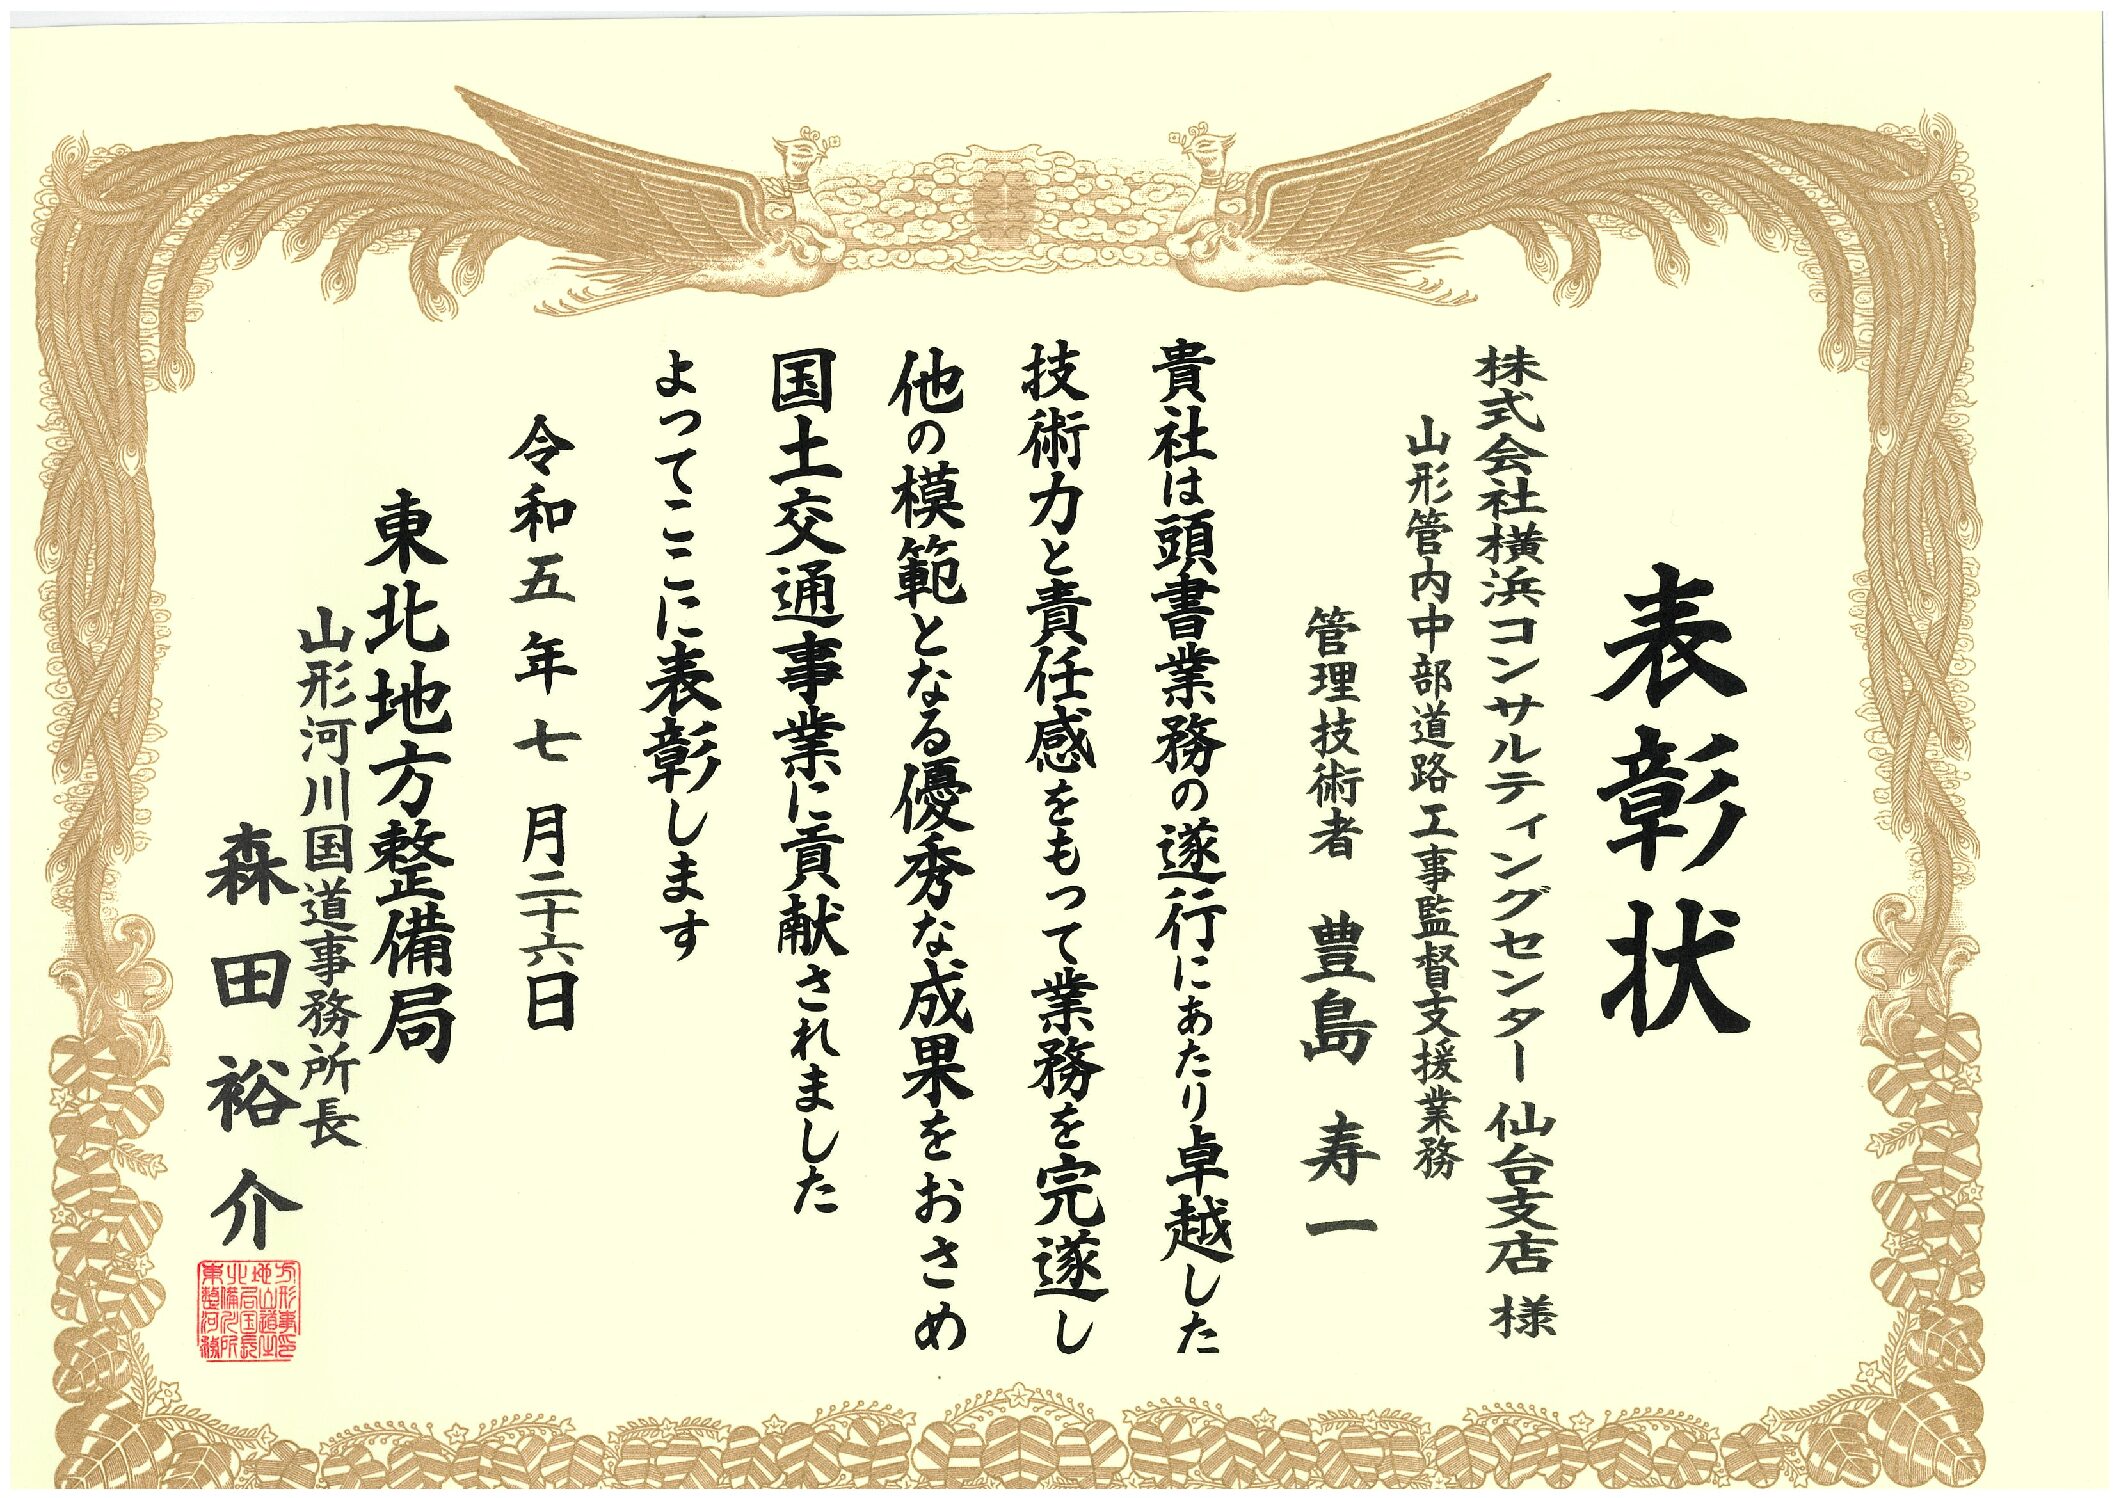 表彰状
株式会社横浜コンサルティングセンター 仙台支店 様
山形管内中部道路工事監督支援業務
管理技術者 豊島 寿一
貴社は頭書業務の遂行にあたり卓越した
技術力と責任感をもって業務を完遂し
他の模範となる優秀な成果をおさめ
国土交通事業に貢献されました
よってここに表彰します
令和五年七月二十六日
東北地方整備局
山形河川国道事務所長
森田裕介